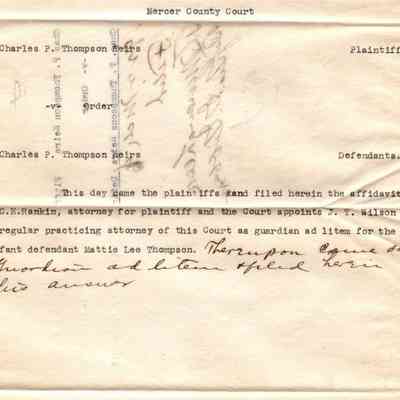 Mercer County Court
Charles P. Thompson Heirs Plaintiff
-v- Order
Charles P. Thompson Heirs Defendants.
This day came the plaintiffs and filed herein the affidavit
C.E.Rankin, attorney for plaintiff and the Court appoints J. T. Wilson
regular practicing attorney of this Court as guardian ad litem for the
fant defendant Mattie Lee Thompson. Thereupon came sd
Guardian ad litem & filed herein
his answer